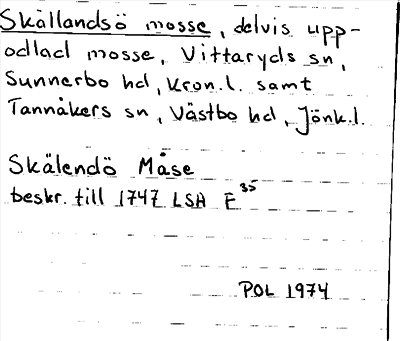 Skällandsö mosse, delvis upp-
odlad mosse, Vittaryds sn,
Sunnerbo hd, Kron.l. samt
Tannåkers sn, Västbo hd, Jönk.l.
Skälendö Måse
beskr. till 1747 LSA E³⁵
POL 1974